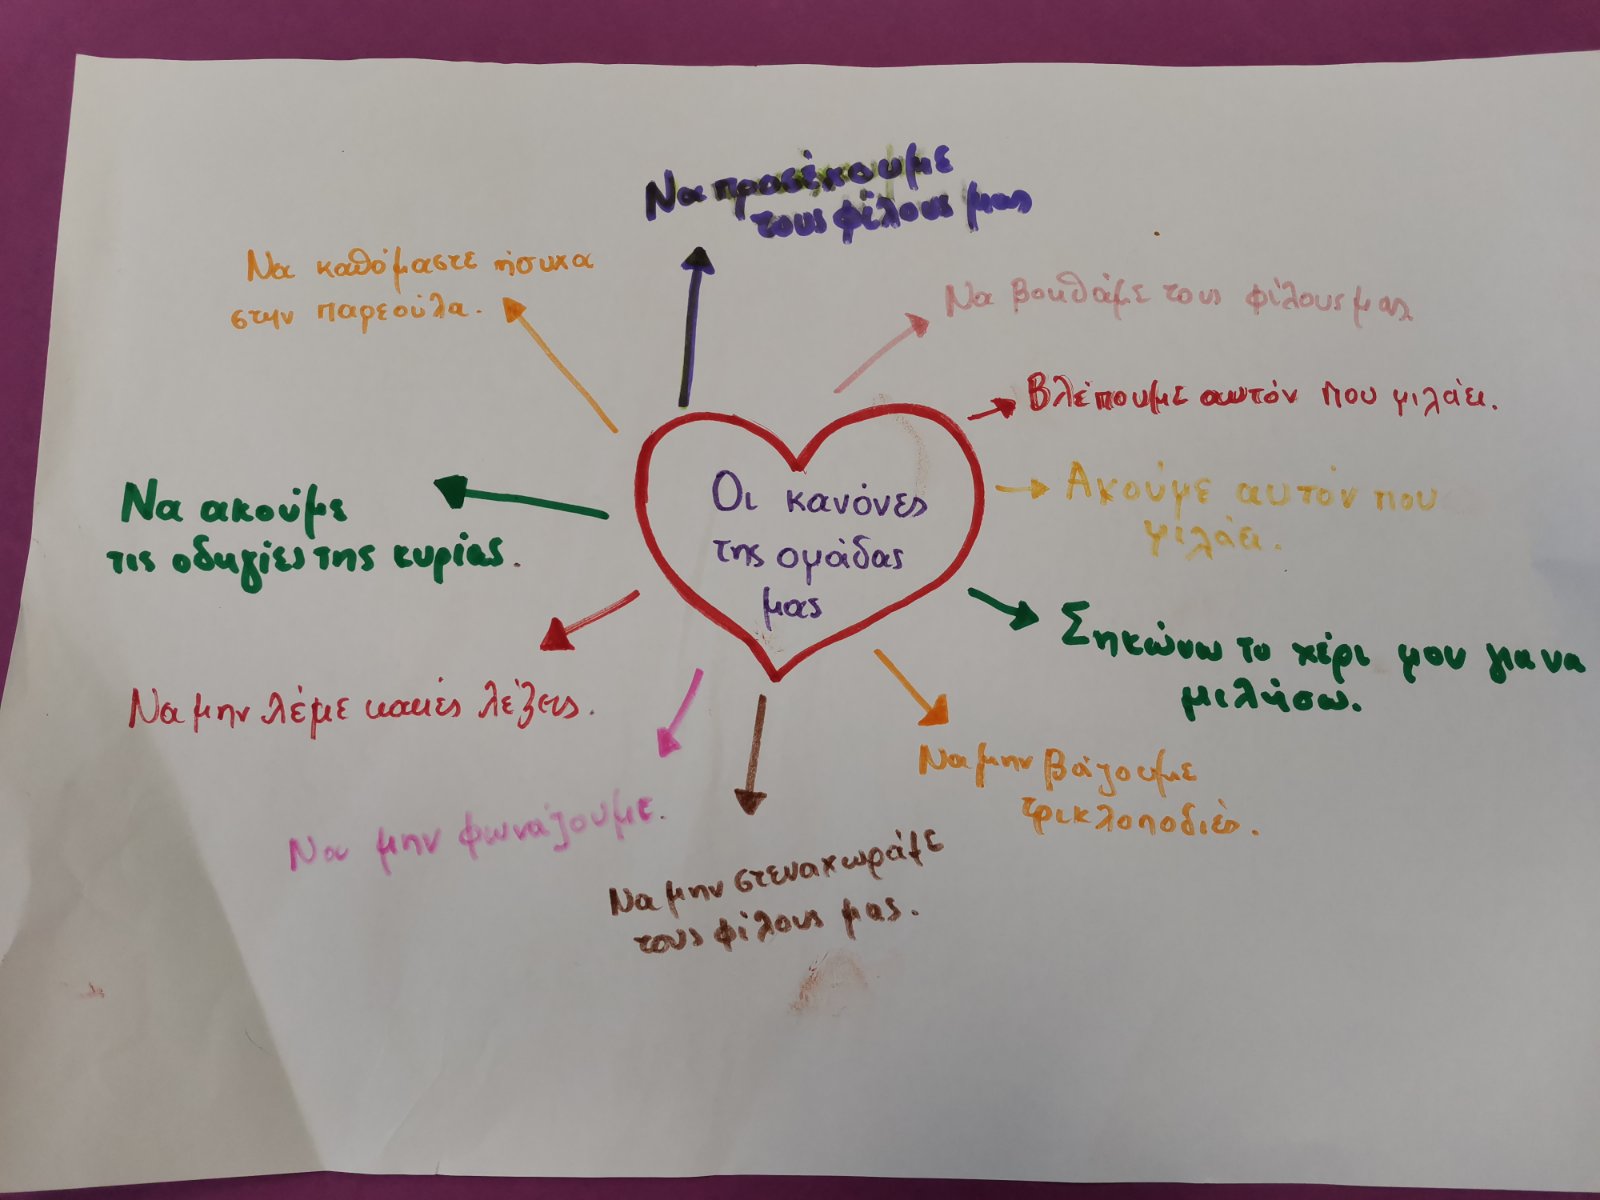 Οι κανόνες
της ομάδας
μας
Να προσέχουμε
τους φίλους μας
Να βοηθάμε τους φίλους μας
Βλέπουμε αυτόν που μιλάει.
Ακούμε αυτόν που
μιλάει.
Σηκώνω το χέρι μου για να
μιλήσω.
Να μην βάζουμε
τρικλοποδιές.
Να μην στεναχωράμε
τους φίλους μας.
Να μην φωνάζουμε.
Να μην λέμε κακές λέξεις.
Να ακούμε
τις οδηγίες της κυρίας.
Να καθόμαστε ήσυχα
στην παρεούλα.